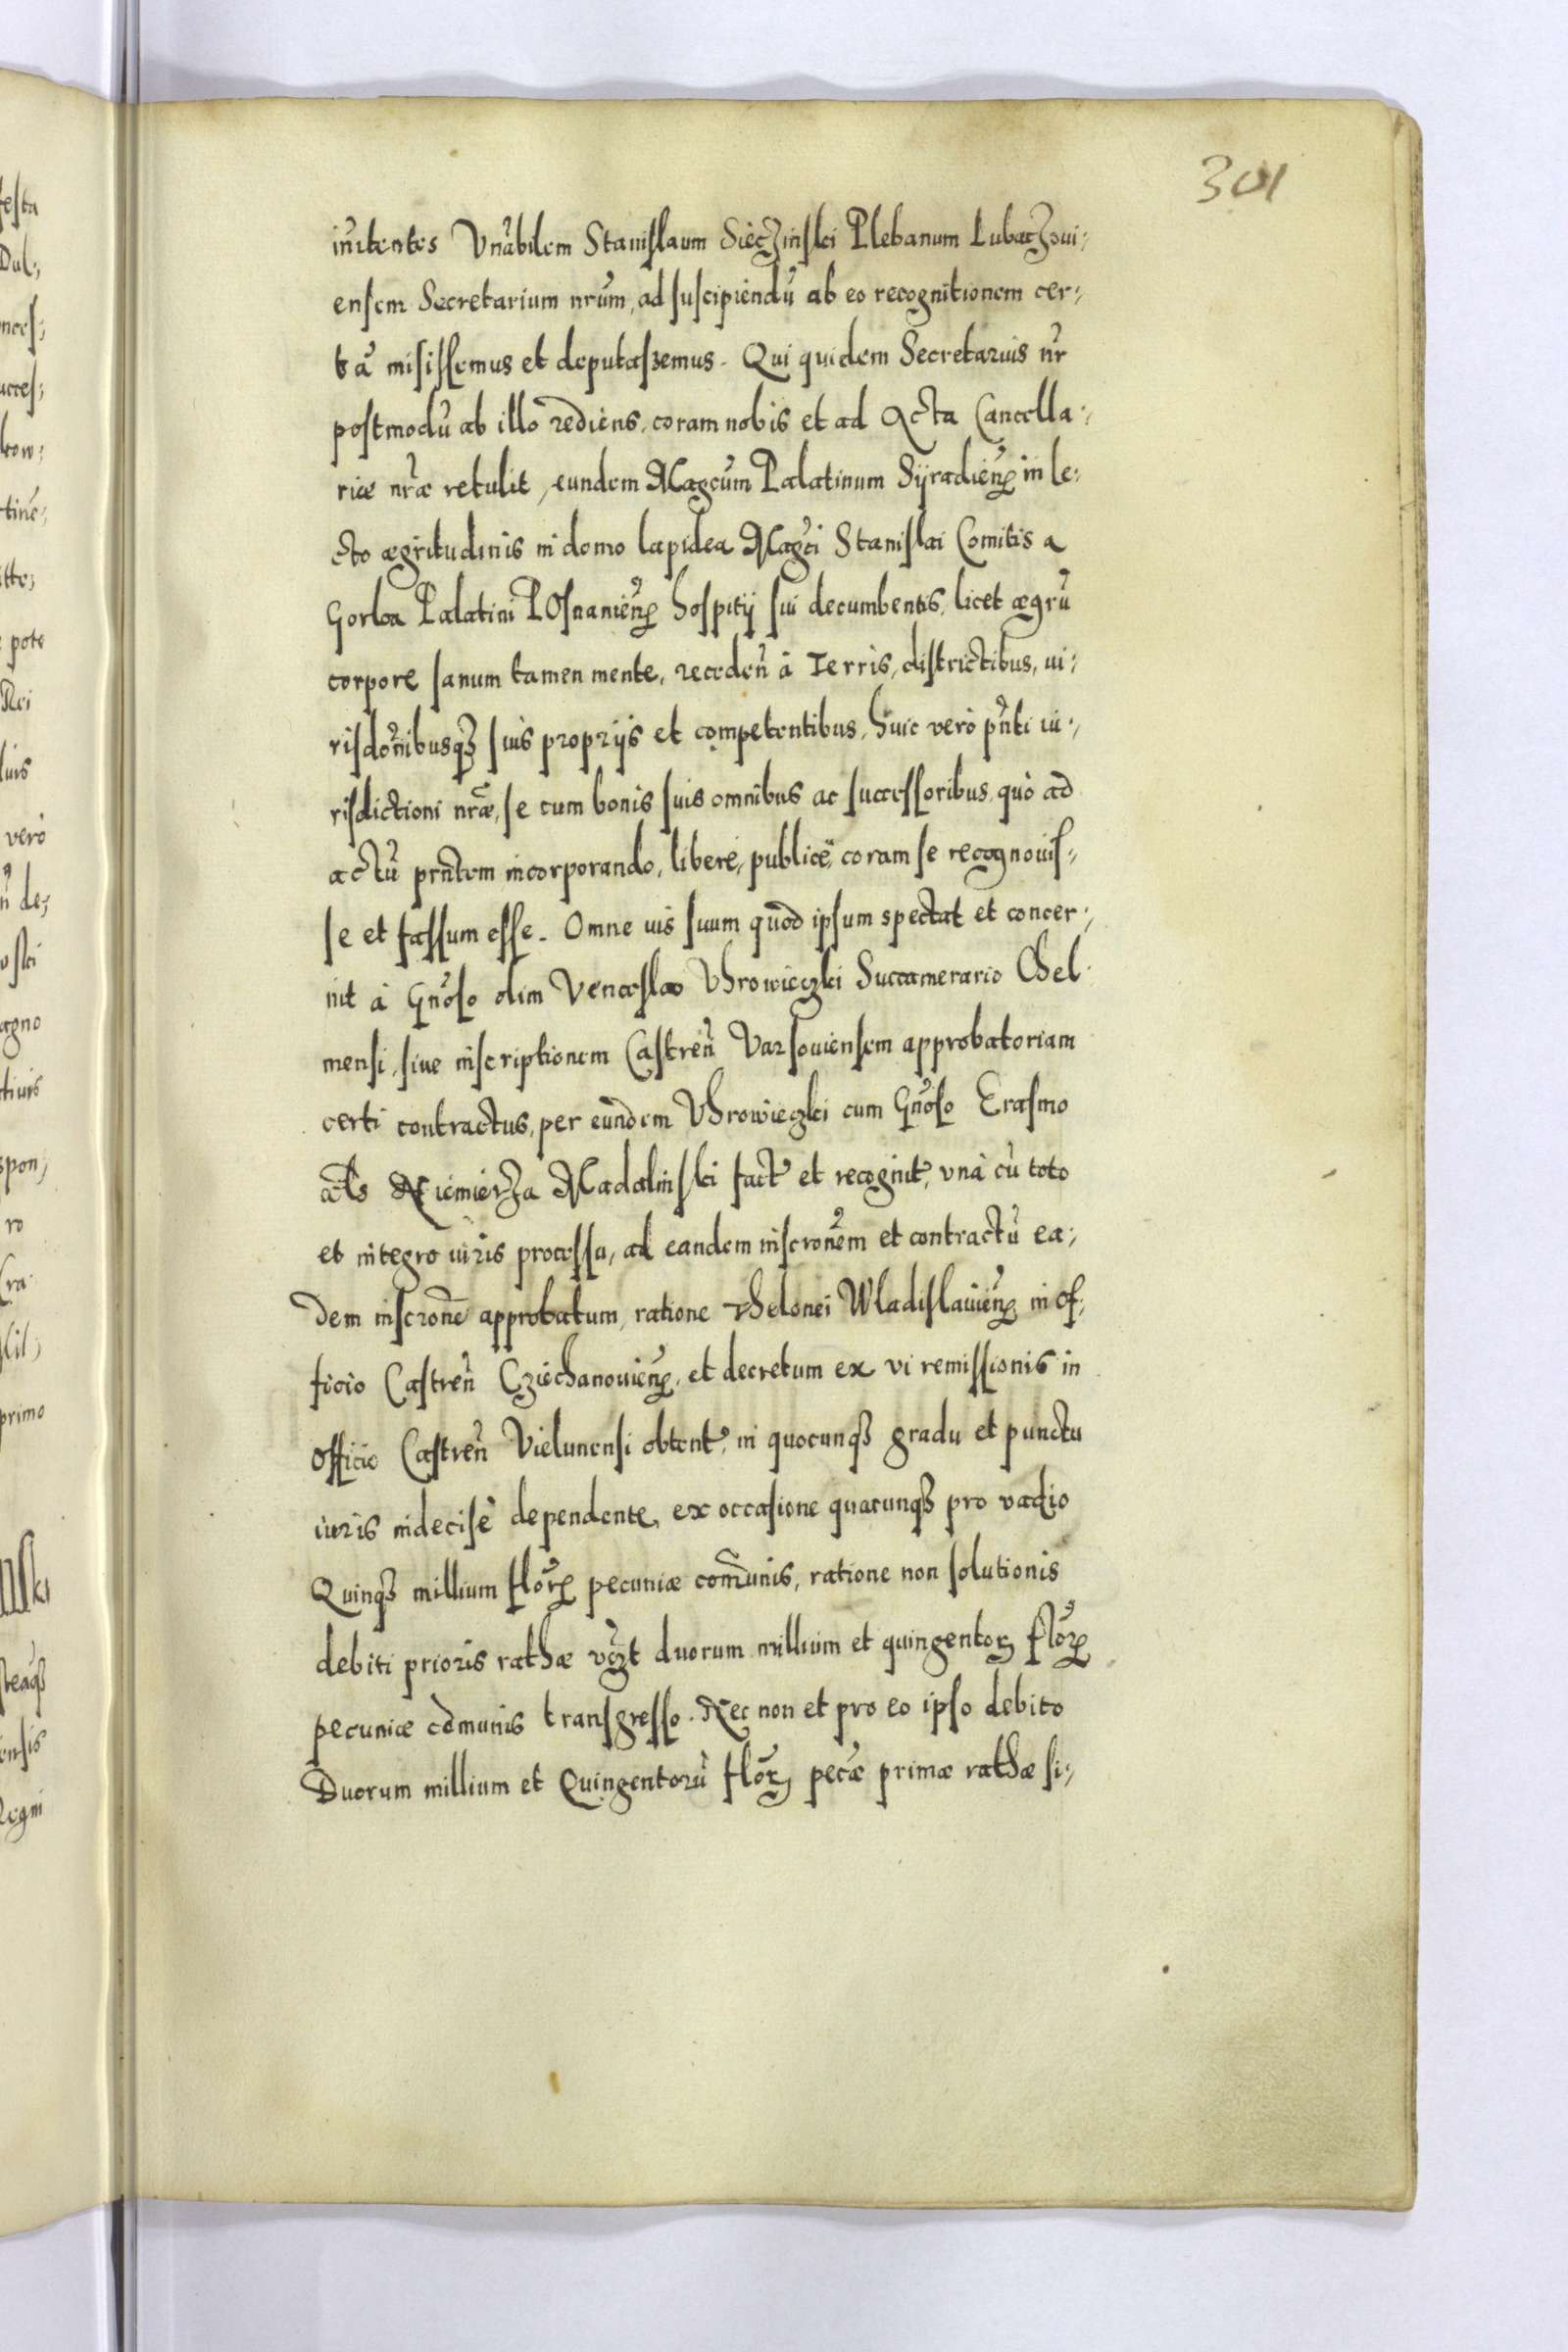 301
inñitentes Vnãbilem Stanislaum Siecżinski Plebanum Lubaczoui-
ensem Secretarium nrũm, ad suscipiendũ ab eo recognitionem cer-
tã misissemus et deputassemus. Qui quidem Secretarius nr̃
postmodũ ab illo rediens, coram nobis et ad Acta Cancella-
riæ nr̃æ retulit, eundem Magcũm Palatinum Syradieñ in le-
cto ægritudinis in domo lapidea Magci Stanislai Comitis a
Gorka Palatini Posnanieñ hospitij sui decumbentis, licet ægrũ
corpore sanum tamen mente, recedeñ à Terris, districtibus, iu-
risdoñibusq3 suis propriis et competentibus, huic verò pñti iu-
risdictioni nr̃æ, se cum bonis suis omnibus ac successoribus, quò ad
actũ prñtem incorporando, liberè, publicè, coram se recognouis-
se et fassum esse. Omne ius suum quod ipsum spectat et concer-
nit à Gnõso olim Venceslao Vhrowieczki Succamerario Chel-
mensi, siue inscriptionem Castreñ Varsouiensem approbatoriam
certi contractus, per eundem Vhrowieczki cum Gnõso Erasmo
als Niemierza Madalinski fact̃ et recognit̃, vnà cũ toto
et integro iuris processu, ad eandem inscronẽm et contractũ ea-
dem inscronẽ approbatum, ratione Thelonei Wladislauieñ in of-
ficio Castreñ Cziechanouieñ, et decretum ex vi remissionis in
officio Castreñ Vielunensi obtent̃, in quocunq3 gradu et punctu
iuris indecisè dependente, ex occasione quacunq3 pro vadio
Quinq3 millium flor̃ pecuniæ com̃unis, ratione non solutionis
debiti prioris rathæ vcz̃t duorum millium et quingentor flor̃
pecuniæ cõmunis transgresso. Nec non et pro eo ipso debito
Duorum millium et Quingentorũ flor̃ pecũæ primæ rathæ si-